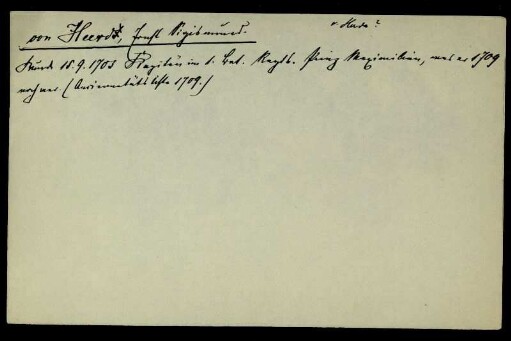 von Heerdt, Ernst Sigismund. v. Harde?
wurde 15.9.1703 Kapitän im 1. Bat. Regts. Prinz Maximilian, was er 1709
noch war (Anciennetätsliste 1709.)